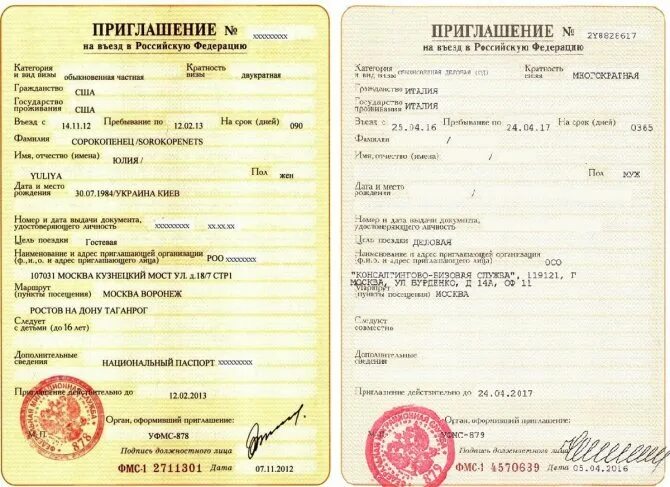 ПРИГЛАШЕНИЕ № xxxxxxxxx
на въезд в Российскую Федерацию
Категория
и вид визы обыкновенная частная Кратность
визы двукратная
Гражданство США
Государство
проживания США
Въезд с 14.11.12 Пребывание по 12.02.13 На срок (дней) 090
Фамилия
СОРОКОПЕНЕЦ /SOROKOPENETS
Имя, отчество (имена)
ЮЛИЯ /
YULIYA Пол жен
Дата и место
рождения 30.07.1984/УКРАИНА КИЕВ
Номер и дата выдачи документа,
удостоверяющего личность xxxxxxxxx xx.xx.xx
Цель поездки Гостевая
Наименование и адрес приглашающей организации
(ф.,и.,о. и адрес приглашающего лица) РОО xxxxxxxxx
107031 МОСКВА КУЗНЕЦКИЙ МОСТ УЛ. д.18/7 СТР1
Маршрут
(пункты посещения) МОСКВА ВОРОНЕЖ
РОСТОВ НА ДОНУ ТАГАНРОГ
Следует
с детьми (до 16 лет)
Дополнительные
сведения НАЦИОНАЛЬНЫЙ ПАСПОРТ xxxxxxxxx
Приглашение действительно до 12.02.2013
Орган, оформивший приглашение:
М.П. УФМС-878
Подпись должностного лица
ФМС-1 2711301 Дата 07.11.2012
878
ПРИГЛАШЕНИЕ № 2Y8828617
на въезд в Российскую Федерацию
Категория
и вид визы ОБЫКНОВЕННАЯ ДЕЛОВАЯ Кратность
визы МНОГОКРАТНАЯ
Гражданство ИТАЛИЯ
Государство
проживания ИТАЛИЯ
Въезд с 25.04.16 Пребывание по 24.04.17 На срок (дней) 0365
Фамилия /
Имя, отчество (имена) /
Пол МУЖ
Дата и место
рождения /
Номер и дата выдачи документа,
удостоверяющего личность
Цель поездки ДЕЛОВАЯ
Наименование и адрес приглашающей организации
(ф.,и.,о. и адрес приглашающего лица) ООО
"КОНСАЛТИНГОВО-ВИЗОВАЯ СЛУЖБА", 119121, Г
МОСКВА, УЛ БУРДЕНКО, Д 14А, ОФ 11
Маршрут
(пункты посещения) МОСКВА
Следует
совместно
Дополнительные
сведения
Приглашение действительно до 24.04.2017
Орган, оформивший приглашение:
УФМС-879
Подпись должностного лица
ФМС-1 4570639 Дата 05.04.2016
879